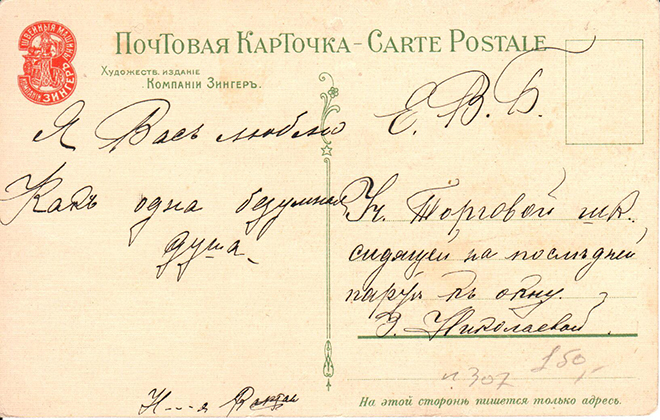 ШВЕЙНЫЯ МАШИНЫ
КОМПАНІИ ЗИНГЕРЪ
ПОЧТОВАЯ КАРТОЧКА – CARTE POSTALE
ХУДОЖЕСТВ. ИЗДАНІЕ
КОМПАНІИ ЗИНГЕРЪ.
Я Васъ люблю
Какъ одна безумная
душа
Н---я
Е. В. Б.
Уч. Торговой шк.
сидящей на послѣдней
партѣ къ окну.
З. Николаевой.
n. 307
150,-
На этой сторонѣ пишется только адресъ.